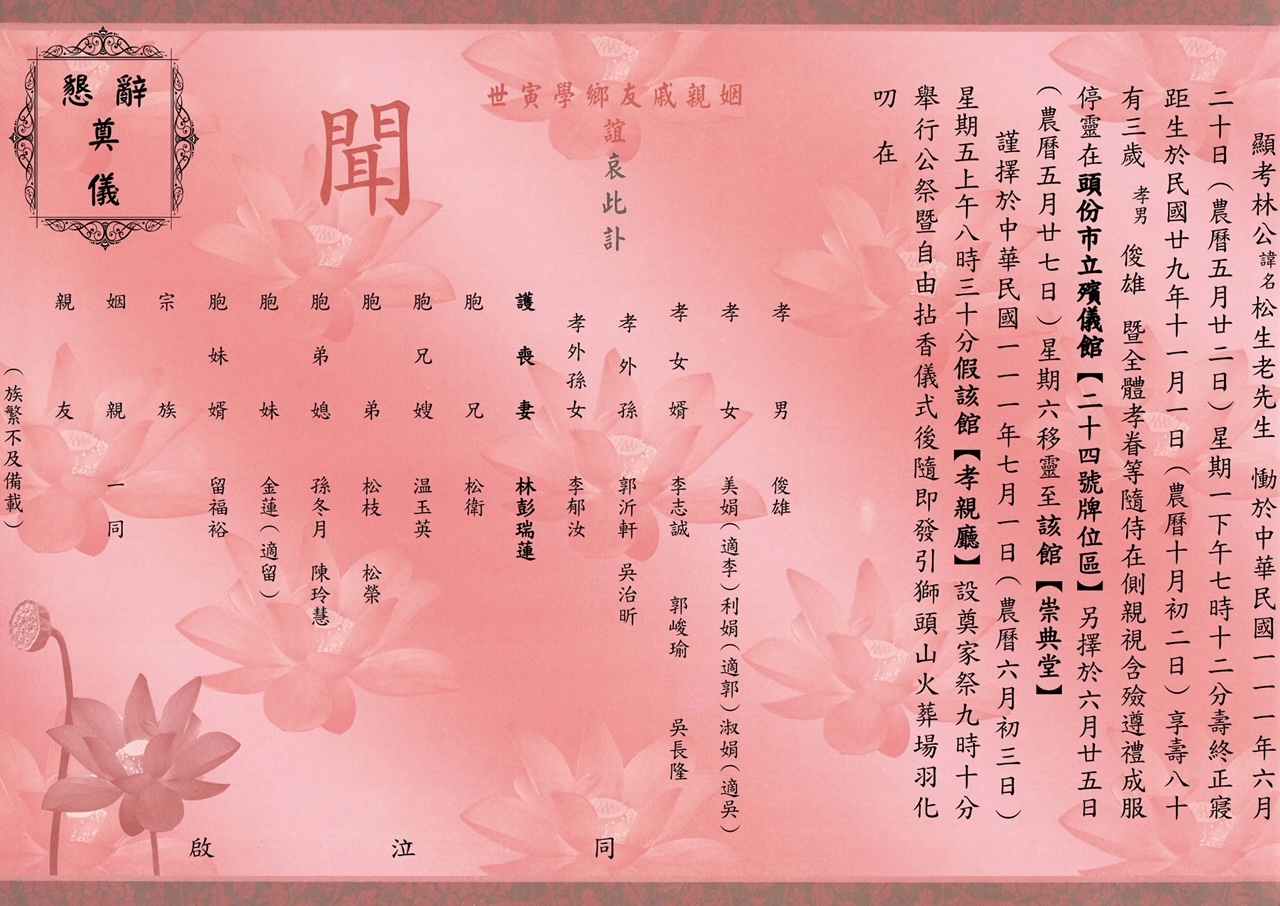 顯考林公諱名松生老先生 慟於中華民國一一一年六月
二十日(農曆五月廿二日)星期一下午七時十二分壽終正寢
距生於民國廿九年十一月一日(農曆十月初二日)享壽八十
有三歲 孝男 俊雄 暨全體孝眷等隨侍在側親視含殮遵禮成服
停靈在頭份市立殯儀館【二十四號牌位區】另擇於六月廿五日
(農曆五月廿七日)星期六移靈至該館【崇典堂】
謹擇於中華民國一一一年七月一日(農曆六月初三日)
星期五上午八時三十分假該館【孝親廳】設奠家祭九時十分
舉行公祭暨自由拈香儀式後隨即發引獅頭山火葬場羽化
叨在
姻親戚友鄉學寅世
誼哀此訃
聞
孝男 俊雄
孝女 美娟(適李)利娟(適郭)淑娟(適吳)
孝女婿 李志誠 郭峻瑜 吳長隆
孝外孫 郭沂軒 吳治昕
孝外孫女 李郁汝
護喪妻 林彭瑞蓮
胞兄 松衛
胞兄嫂 温玉英
胞弟 松枝 松榮
胞弟媳 孫冬月 陳玲慧
胞妹 金蓮(適留)
胞妹婿 留福裕
宗族
姻親 一同
親友
(族繁不及備載)
同泣啟
懇辭
奠
儀